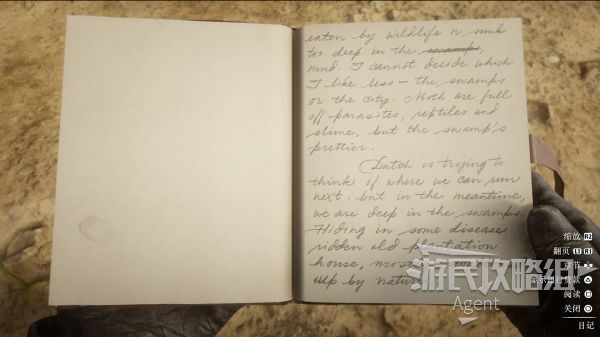 eaten by wildlife or sunk
too deep in the swamps,
mud. I cannot decide which
I like less — the swamps
or the city. Both are full
off parasites, reptiles and
slime, but the swamp's
prettier.
Dutch is trying to
think of where we can run
next. but in the meantime,
we are deep in the swamps.
Hiding in some disease
ridden old plantation
house,
up by
缩放 R2
翻页 L1 R1
阅读
关闭
日记
游民攻略组
Agent